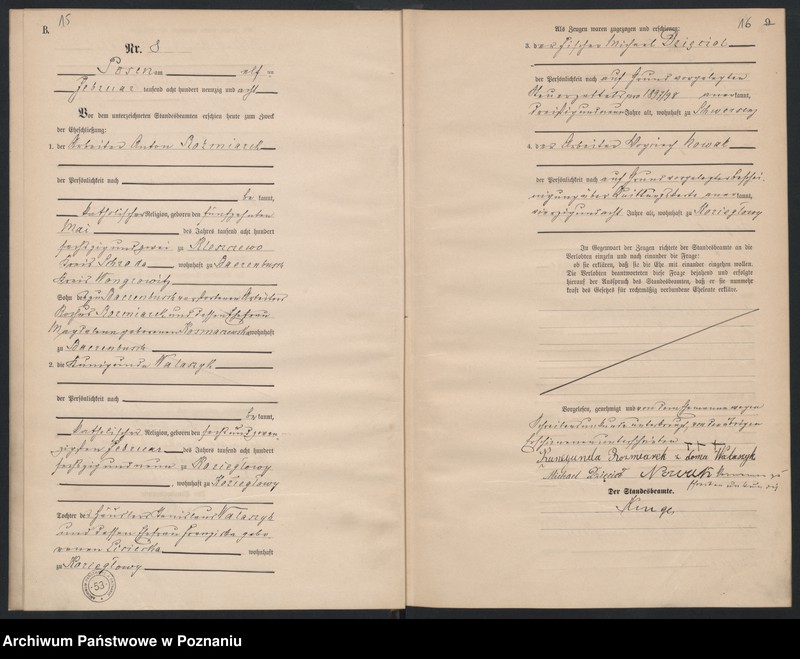 15
B.
Nr. 8
Posen am elf ten
Februar tausend acht hundert neunzig und acht
Vor dem unterzeichneten Standesbeamten erschien heute zum Zweck
der Eheschließung:
1. der Arbeiter Anton Rozmiarek
der Persönlichkeit nach
be kannt,
katholischer Religion, geboren den fünfzehnten
Mai des Jahres tausend acht hundert
sechszig und zwei zu
Kreis Schroda, wohnhaft zu
Kreis Wongrowitz
Sohn des zu verstorbenen Arbeiters
Rozmiarek und dessen Ehefrau
Magdalena geborenen wohnhaft
zu
2. die Kunigunda Walaszyk
der Persönlichkeit nach
be kannt,
katholischer Religion, geboren den sechsundzwan-
zigsten Februar des Jahres tausend acht hundert
sechszig und neun zu Koziegłowy
, wohnhaft zu Koziegłowy
Tochter des Häuslers Stanislaus Walaszyk
und dessen Ehefrau Franziska gebo-
renen wohnhaft
zu Koziegłowy
53
16
Als Zeugen waren zugezogen und erschienen:
3. der Fischer Michael Dzięcioł
der Persönlichkeit nach auf Grund vorgelegten
Steuerzettels pro 1897/98 anerkannt,
dreißigundneun Jahre alt, wohnhaft zu Schwersenz
4. der Arbeiter Woyciech Nowak
der Persönlichkeit nach auf Grund vorgelegter Beschei-
nigung der Quittungskarte anerkannt,
vierzigundacht Jahre alt, wohnhaft zu Koziegłowy
In Gegenwart der Zeugen richtete der Standesbeamte an die
Verlobten einzeln und nach einander die Frage:
ob sie erklären, daß sie die Ehe mit einander eingehen wollen.
Die Verlobten beantworteten diese Frage bejahend und erfolgte
hierauf der Ausspruch des Standesbeamten, daß er sie nunmehr
kraft des Gesetzes für rechtmäßig verbundene Eheleute erkläre.
Vorgelesen, genehmigt und von dem Ehemanne wegen
Schreibensunkunde unterkreuzt, von den übrigen
Erschienenen unterschrieben +++
Kunegunda Rozmiarek z doma Walaszyk
Michael Dzięcioł Nowak
Der Standesbeamte.
Archiwum Państwowe w Poznaniu